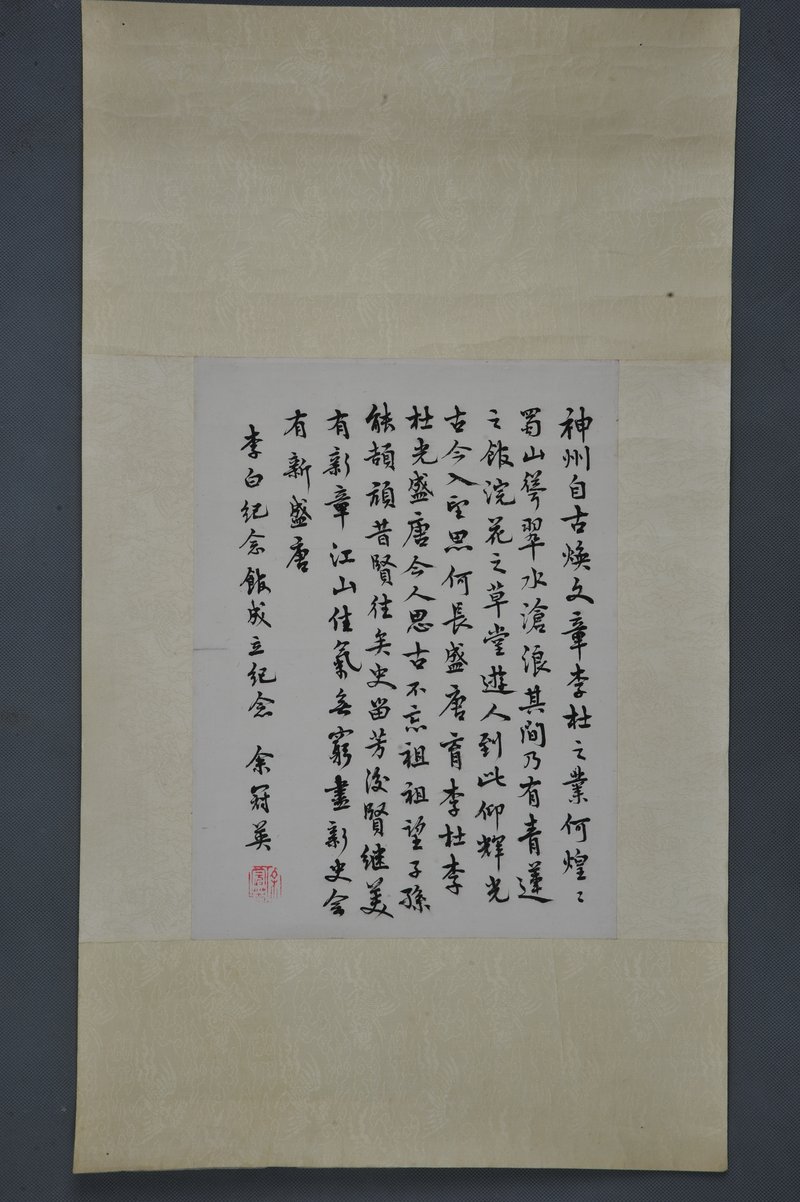 神州自古煥文章李杜之業何煌〻
蜀山聳翠水滄浪其間乃有青蓮
之館浣花之草堂遊人到此仰輝光
古今入望思何長盛唐育李杜李
杜光盛唐今人思古不忘祖祖望子孫
能頡頏昔賢往矣史留芳後賢继美
有新章江山佳氣無窮盡新史会
有新盛唐
李白紀念館成立紀念 余冠英
余冠英